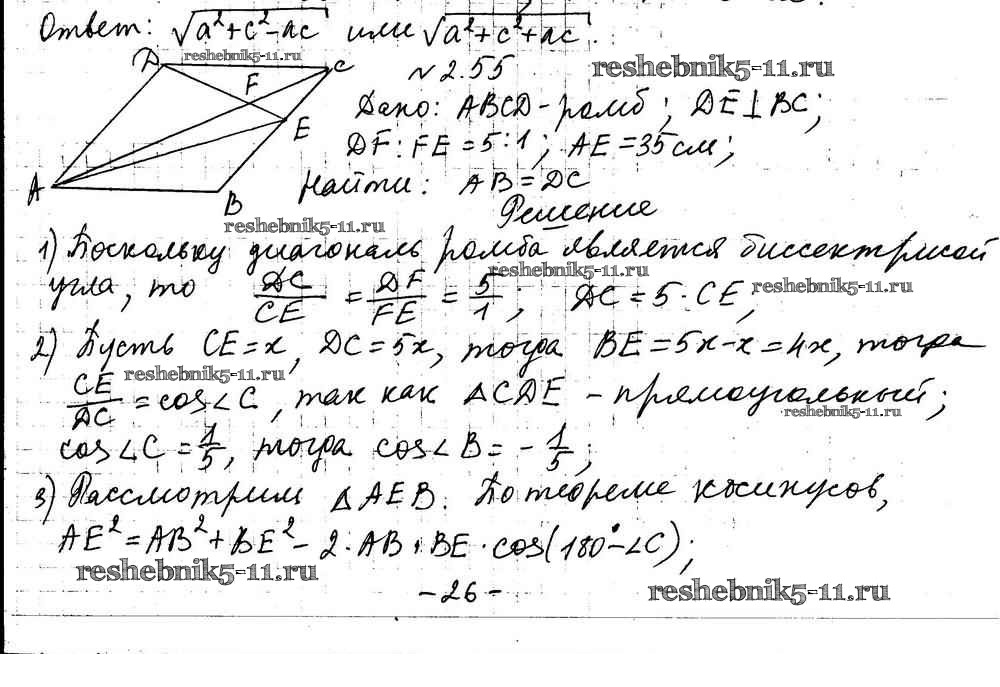 Ответ: √a²+c²-ac или √a²+c²+ac.
reshebnik5-11.ru
D C F E A B
№2.55
reshebnik5-11.ru
Дано: ABCD - ромб; DE⊥BC;
DF:FE=5:1; AE=35см;
Найти: AB=DC
reshebnik5-11.ru
Решение
1) Поскольку диагональ ромба является биссектрисой
reshebnik5-11.ru
угла, то DC/CE = DF/FE = 5/1; DC=5·CE;
reshebnik5-11.ru
2) Пусть CE=x, DC=5x, тогда BE=5x-x=4x, тогда
reshebnik5-11.ru
CE/DC = cos∠C, так как △CDE - прямоугольный;
reshebnik5-11.ru
cos∠C = 1/5, тогда cos∠B = -1/5;
3) Рассмотрим △AEB. По теореме косинусов,
AE²=AB²+BE²-2·AB·BE·cos(180°-∠C);
reshebnik5-11.ru
-26-
reshebnik5-11.ru